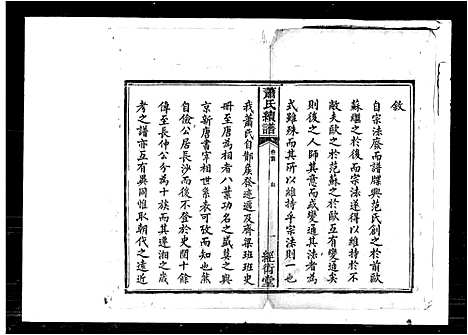 敘
自宗法廢而譜牒興范氏創之於前歐
蘇繼之於後而宗法遂得以維持於不
敝夫歐之於范蘇之於歐互有變通矣
則後之人師其意而或變通其法者為
式雖殊而其所以維持乎宗法則一也
蕭氏續譜
卷首
敘
一
經術堂
我蕭氏自鄫侯發迹遞及齊梁班班史
冊至唐為相者八葉功名之盛莫之與
京新唐書宰相世系表可按而稽也迨
自儉公居長沙而後不登於史閱十餘
傳至長仲公分為十其在邊湘之或
考之譜亦互有異同惟取朝代之遠近